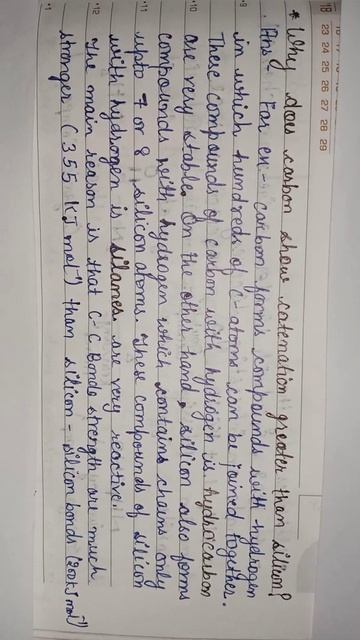 18
23 24 25 26 27 28 29
* Why does carbon show catenation greater than silicon?
Ans. For ex - carbon forms compounds with hydrogen
•9 in which hundreds of C-atoms can be joined together.
These compounds of carbon with hydrogen is hydrocarbon
•10 are very stable. On the other hand, silicon also forms
compounds with hydrogen which contains chains only
•11 upto 7 or 8 silicon atoms. These compounds of silicon
with hydrogen is silanes are very reactive.
•12 The main reason is that C-C Bonds strength are much
•1 stronger (355 KJ mol⁻¹) than silicon - silicon bonds (200kJ mol⁻¹)